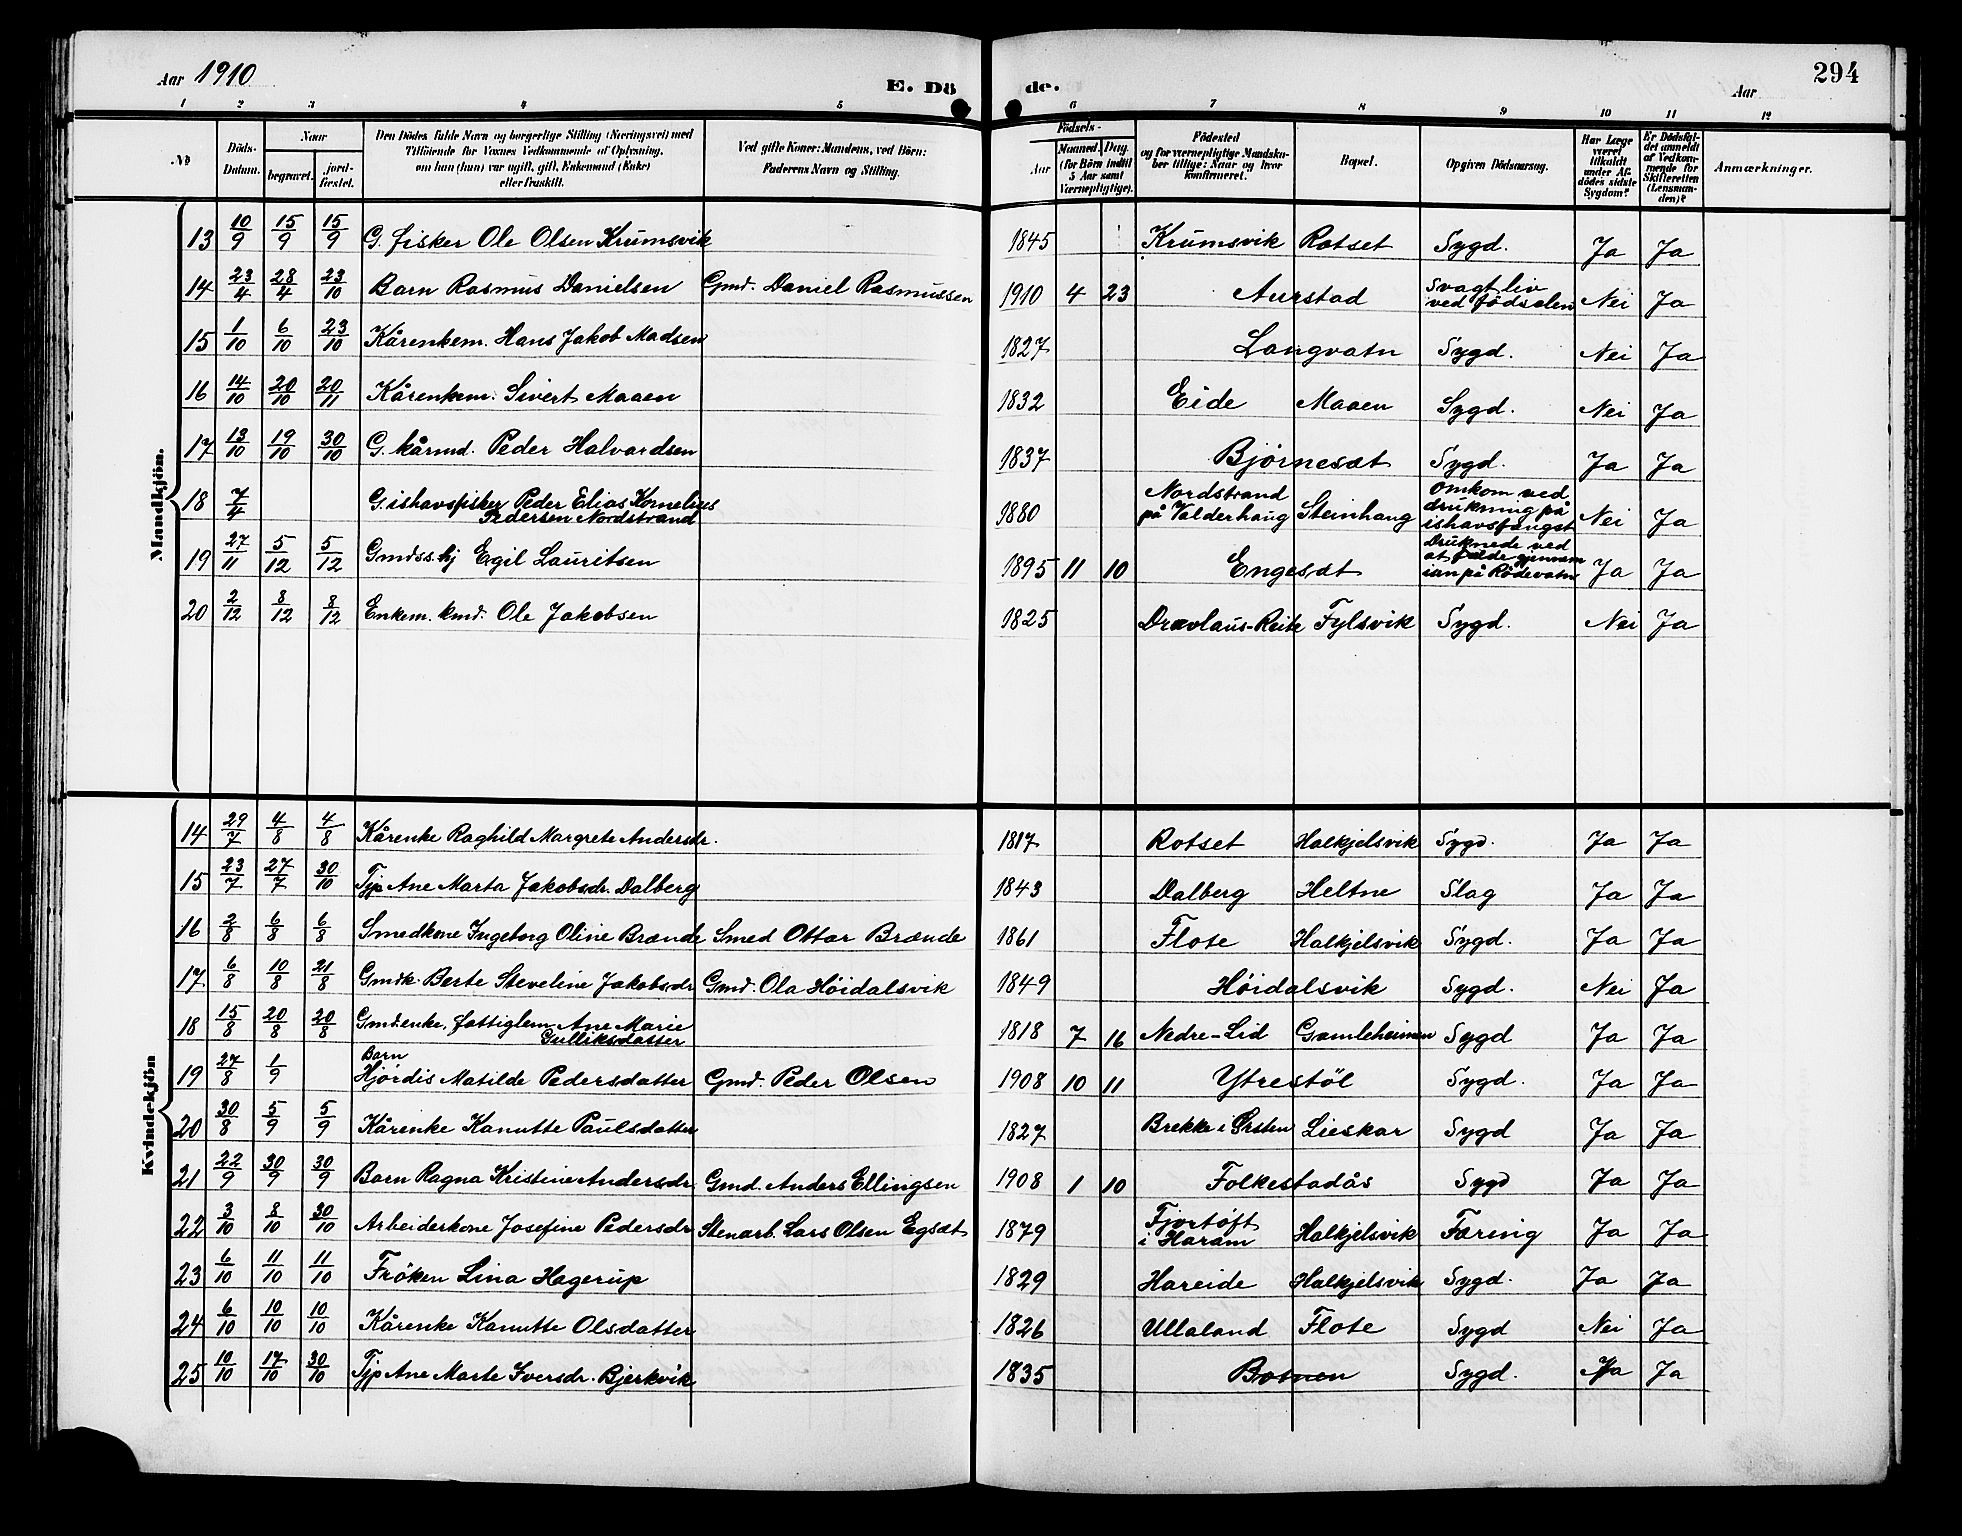 Aar 1910 E. Dö de. Aar 294
1 2 3 4 5 6 7 8 9 10 11 12
No Döds-Datum. Naar begravet. jord-fæstet. Den Dödes fulde Navn og borgerlige Stilling (Næringsvei) med Tilföiende for Voxnes Vedkommende af Oplysning, om han (hun) var ugift, gift, Enkemand (Enke) eller fraskilt. Ved gifte Koner: Mandens, ved Börn: Faderens Navn og Stilling. Födsels- Aar Maaned. Dag. (for Börn indtil 5 Aar samt Værnepligtige). Födested og for værnepligtige Mandskaber tillige: Naar og hvor konfirmeret. Bopæl. Opgiven Dödsaarsag. Har Læge været tilkaldt under Afdödes sidste Sygdom? Er Dödsfaldet anmeldt af Vedkommende for Skifteretten (Lensmanden)? Anmærkninger.
Mandkjön.
13 10/9 15/9 15/9 G. fisker Ole Olsen Krumsvik 1845 Krumsvik Rotset Sygd. Ja Ja
14 23/4 28/4 23/10 Barn Rasmus Danielsen Gmd. Daniel Rasmussen 1910 4 23 Aurstad Svagt liv ved fødselen Nei Ja
15 1/10 6/10 23/10 Kårenkem. Hans Jakob Madsen 1827 Langvatn Sygd. Nei Ja
16 14/10 20/10 20/11 Kårenkem. Sivert Maaen 1832 Eide Maaen Sygd. Nei Ja
17 13/10 19/10 30/10 G. kårmd. Peder Halvardsen 1837 Bjørnesæt Sygd. Ja Ja
18 7/4 G. ishavsfisker Peder Elias Kornelius Pedersen Nordstrand 1880 Nordstrand på Valderhaug Steinhaug Omkom ved drukning på ishavsfangst Nei Ja
19 27/11 5/12 5/12 Gmdss. hj Egil Lauritsen 1895 11 10 Engesæt Druknede ved at falde gjennem isen på Rödevatn Ja Ja
20 2/12 8/12 8/12 Enkem. kmd. Ole Jakobsen 1825 Dravlaus-Reite Fylsvik Sygd. Nei Ja
Kvindekjön
14 29/7 4/8 4/8 Kårenke Raghild Margrete Andersdr. 1817 Rotset Halkjelsvik Sygd. Ja Ja
15 23/7 27/7 30/10 Tjp Ane Marta Jakobsdr. Dalberg 1843 Dalberg Heltne Slag Ja Ja
16 2/8 6/8 6/8 Smedkone Ingeborg Oline Brænde Smed Ottar Brænde 1861 Flote Halkjelsvik Sygd. Ja Ja
17 6/8 10/8 21/8 Gmdk. Berte Steveline Jakobsdr Gmd. Ola Höidalsvik 1849 Höidalsvik Sygd. Nei Ja
18 15/8 20/8 20/8 Gmdenke, fattiglem Ane Marie Gulliksdatter 1818 7 16 Nedre-Lid Gamleheimen Sygd Ja Ja
19 27/8 1/9 Barn Hjördis Matilde Pedersdatter Gmd. Peder Olsen 1908 10 11 Ytrestöl Sygd. Ja Ja
20 30/8 5/9 5/9 Kårenke Kanutte Paulsdatter 1827 Brekke i Ørsten Lieskar Sygd Ja Ja
21 22/9 30/9 30/9 Barn Ragna Kristine Andersdr. Gmd. Anders Ellingsen 1908 1 10 Folkestadås Sygd Ja Ja
22 3/10 8/10 30/10 Arbeiderkone Josefine Pedersdr Stenarb. Lars Olsen Egsæt 1879 Fjortöft i Haram Halkjelsvik Tæring Ja Ja
23 6/10 11/10 11/10 Fröken Lina Hagerup 1829 Hareide Halkjelsvik Sygd. Ja Ja
24 6/10 10/10 10/10 Kårenke Kanutte Olsdatter 1826 Ullaland Flote Sygd Nei Ja
25 10/10 17/10 30/10 Tjp Ane Marte Iversdr. Bjerkvik 1835 Botnen Sygd. Ja Ja